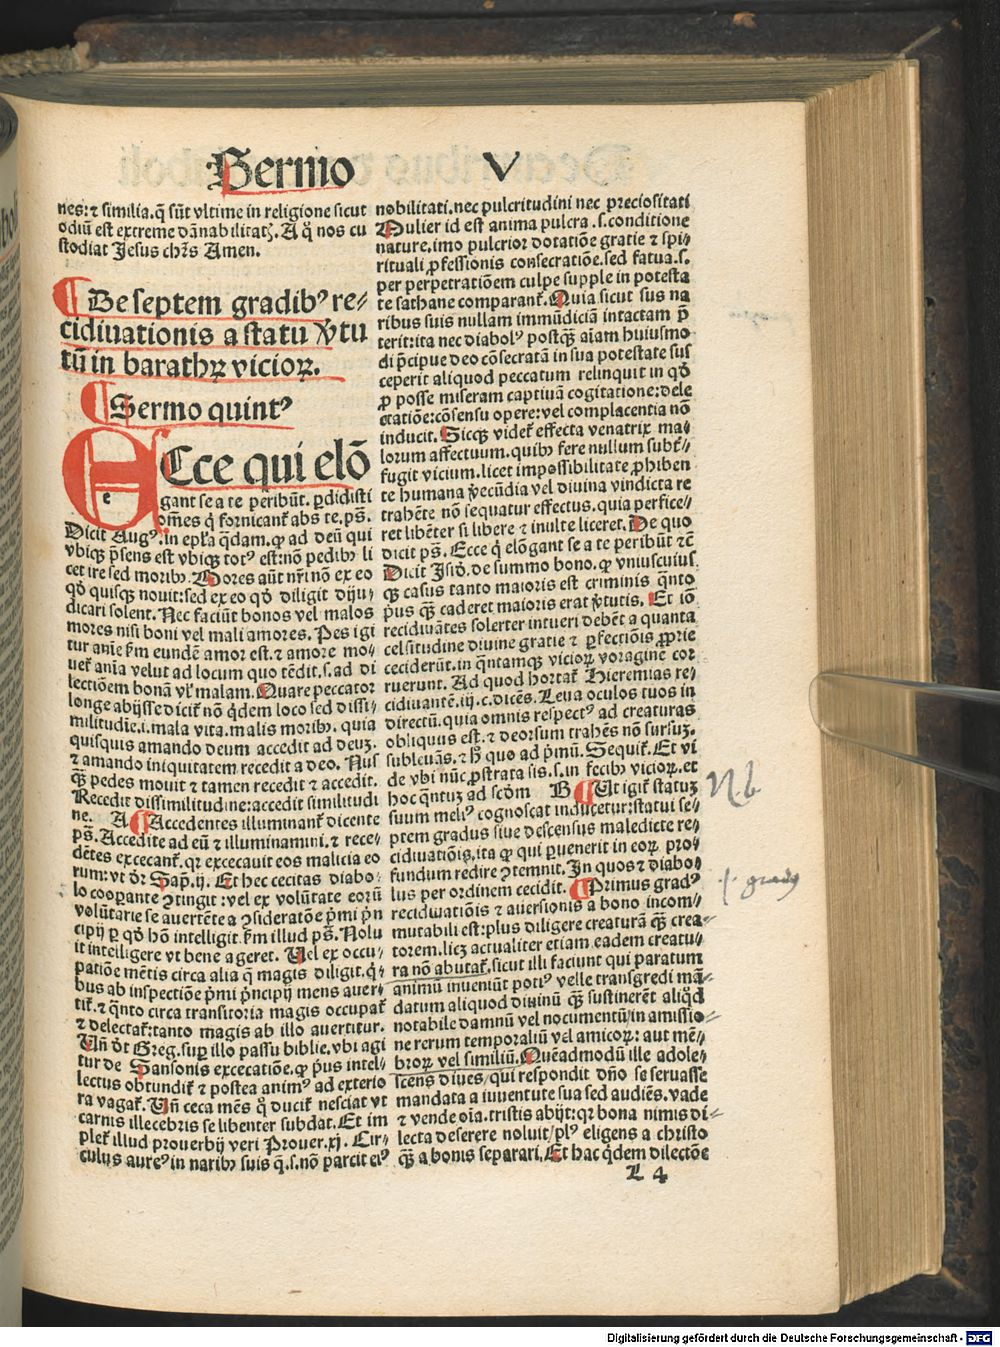 Sermo V
nes: ⁊ similia. q̄ sūt vltime in religione sicut
odiū est extreme dānabilitatꝭ. A q̊ nos cu
stodiat Jesus chr̄s Amen.
¶ De septem gradibꝰ re⸗
cidiuationis a statu v̓tu
tū in barathꝝ vicioꝝ.
¶ Sermo quintꝰ
ECce qui elō
gant se a te peribūt. ꝑdidisti
om̄es q̇ fornicant̄ abs te. pš.
Dicit Augꝰ. in epl̄a q̄dam. ꝙ ad deū qui
vbiqꝫ p̄sens est vbiqꝫ totꝰ est: nō pedibꝫ li
cet ire sed moribꝫ. Mores aūt nr̄i nō ex eo
qd̓ quisqꝫ nouit: sed ex eo qd̓ diligit diiu⸗
dicari solent. Nec faciūt bonos vel malos
mores nisi boni vel mali amores. Pes igi
tur anīe ẜm eundē amor est. ⁊ amore mo⸗
uet̄ anīa velut ad locum quo tēdit. s. ad di
lectiōem bonā vl̓ malam. Quare peccator
longe abijsse dicit̄ nō q̇dem loco sed dissi⸗
militudīe. i. mala vita. malis moribꝫ. quia
quisquis amando deum accedit ad deuꝫ.
⁊ amando iniquitatem recedit a deo. Nusꝫ
qꝫ pedes mouit ⁊ tamen recedit ⁊ accedit.
Recedit dissimilitudine: accedit similitudi
ne. A ¶ Accedentes illuminant̄ dicente
pš. Accedite ad eū ⁊ illuminamini. ⁊ rece⸗
dētes excecant̄. qꝛ excecauit eos malicia eo
rum: vt dr̄ Sap̄. ij. Et hec cecitas diabo⸗
lo cooꝑante ꝯtingit: vel ex volūtate eorū
volūtarie se auertēte a ꝯsideratōe p̄mi p̄n
cipij ꝑ qd̓ hō intelligit ẜm illud pš. Nolu
it intelligere vt bene ageret. Uel ex occu⸗
patiōe mētis circa alia q̄ magis diligit. q̇⸗
bus ab inspectiōe p̄mi p̄ncipij mens auer⸗
tit̄. ⁊ q̄nto circa transitoria magis occupat̄
⁊ delectat̄: tanto magis ab illo auertitur.
Un̄ dt̓ Greg. suꝑ illo passu biblie. vbi agi
tur de Sansonis excecatiōe. ꝙ p̓us intel⸗
lectus obtundit̄ ⁊ postea animꝰ ad exterio
ra vagat̄. Un̄ ceca mēs q̊ ducit̄ nesciat vt
carnis illecebris se libenter subdat. Et im
plet̄ illud prouerbij veri Prouer. xj. Cir⸗
culus aureꝰ in naribꝫ suis q̇. s. nō parcit eiꝰ
nobilitati. nec pulcritudini nec preciositati
Mulier id est anima pulcra. s. conditione
nature. imo pulcrior dotatiōe gratie ⁊ spi⸗
rituali ꝓfessionis consecratiōe. sed fatua. s.
per perpetratiōem culpe supple in potesta
te sathane comparant̄. Quia sicut sus na
ribus suis nullam immūdiciā intactam p̄
terit: ita nec diabolꝰ postqꝫ aīam huiusmo
di p̄cipue deo cōsecratā in sua potestate sus
ceperit aliquod peccatum relinquit in qd̓
ꝓ posse miseram captiuā cogitatione: dele
ctatiōe: cōsensu opere: vel complacentia nō
inducit. Sicqꝫ videt̄ effecta venatrix ma⸗
lorum affectuum. quibꝫ fere nullum subt̓⸗
fugit vicium. licet impossibilitate ꝓhiben
te humana v̓ecūdia vel diuina vindicta re
trahēte nō sequatur effectus. quia perfice⸗
ret libēter si libere ⁊ inulte liceret. De quo
dicit pš. Ecce q̇ elōgant se a te peribūt ⁊c̄
Dicit Jsid̓. de summo bono. ꝙ vniuscuius
qꝫ casus tanto maioris est criminis q̄nto
p̓us qꝫ caderet maioris erat v̓tutis. Et iō
recidiuātes solerter intueri debēt a quanta
celsitudine diuine gratie ⁊ ꝑfectiōis ꝓprie
ceciderūt. in q̄ntamqꝫ vicioꝝ voragine cor
ruerunt. Ad quod hortat̄ Hieremias re⸗
cidiuantē. iij. c. dicēs. Leua oculos tuos in
directū. quia omnis respectꝰ ad creaturas
obliquus est. ⁊ deorsum trahēs nō sursuꝫ.
subleuās. ⁊ hͦ quo ad p̄mū. Sequit̄. Et vi
de vbi nūc ꝓstrata sis. s. in fecibꝫ vicioꝝ. et
hoc q̄ntuꝫ ad scd̓m B ¶ Ut igit̄ statuꝫ
suum meliꝰ cognoscat inducetur: statui se⸗
ptem gradus siue descensus maledicte re⸗
cidiuatiōis. ita ꝙ qui ꝑuenerit in eoꝝ pro⸗
fundum redire ꝯtemnit. Jn quos ⁊ diabo⸗
lus per ordinem cecidit. ¶ Primus gradꝰ
recidiuatiōis ⁊ auersionis a bono incom⸗
mutabili est: plus diligere creaturā qꝫ crea⸗
torem. licꝫ actualiter etiam eadem creatu⸗
ra nō abutat̄. sicut illi faciunt qui paratum
animū inueniūt potiꝰ velle transgredi mā⸗
datum aliquod diuinū qꝫ sustinerēt aliqd̓
notabile damnū vel nocumentū in amissio⸗
ne rerum temporaliū vel amicoꝝ: aut mē⸗
broꝝ vel similiū. Quēadmodū ille adole⸗
scens diues/ qui respondit dn̄o se seruasse
mandata a iuuentute sua sed audiēs. vade
⁊ vende oīa. tristis abijt: qꝛ bona nimis di⸗
lecta deserere noluit/ plꝰ eligens a christo
qꝫ a bonis separari. Et hac q̇dem dilectōe
L 4
Nb
j. gradꝰ
Digitalisierung gefördert durch die Deutsche Forschungsgemeinschaft - DFG